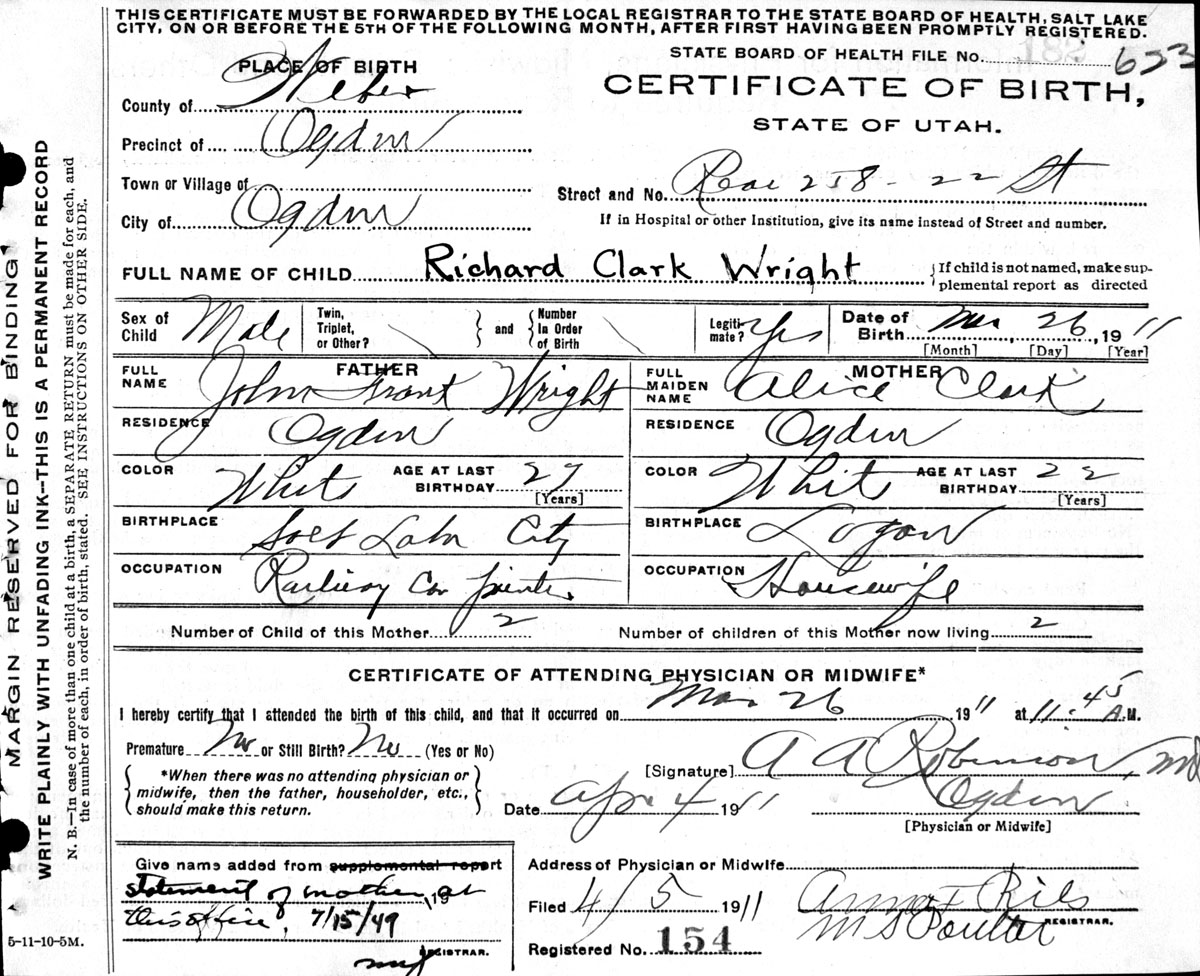 THIS CERTIFICATE MUST BE FORWARDED BY THE LOCAL REGISTRAR TO THE STATE BOARD OF HEALTH, SALT LAKE
CITY, ON OR BEFORE THE 5TH OF THE FOLLOWING MONTH, AFTER FIRST HAVING BEEN PROMPTLY REGISTERED.
STATE BOARD OF HEALTH FILE No. 182 653
PLACE OF BIRTH
CERTIFICATE OF BIRTH,
STATE OF UTAH.
County of Weber
Precinct of Ogden
Town or Village of
City of Ogden
Street and No. Rear 258 - 22 St
If in Hospital or other Institution, give its name instead of Street and number.
FULL NAME OF CHILD Richard Clark Wright
{If child is not named, make sup-
plemental report as directed
Sex of Child Male
Twin, Triplet, or Other? } and { Number In Order of Birth
Legiti-mate? Yes
Date of Birth Mar 26, 1911
[Month] [Day] [Year]
FATHER
FULL NAME John Grant Wright
RESIDENCE Ogden
COLOR White AGE AT LAST BIRTHDAY 27
[Years]
BIRTHPLACE Salt Lake City
OCCUPATION Railway Car Painter
MOTHER
FULL MAIDEN NAME Alice Clark
RESIDENCE Ogden
COLOR White AGE AT LAST BIRTHDAY 22
[Years]
BIRTHPLACE Logan
OCCUPATION Housewife
Number of Child of this Mother 2 Number of children of this Mother now living 2
CERTIFICATE OF ATTENDING PHYSICIAN OR MIDWIFE*
I hereby certify that I attended the birth of this child, and that it occurred on Mar 26 1911 at 11.45 A.M.
Premature No or Still Birth? No (Yes or No)
{ *When there was no attending physician or
midwife, then the father, householder, etc.,
should make this return. }
[Signature] A A Robinson, MD
Date Apr 4 1911 Ogden
[Physician or Midwife]
Give name added from supplemental report
statement of mother, at , 19
this office, 7/15/49
REGISTRAR.
Address of Physician or Midwife
Filed 4/5 1911
M S Poulter
REGISTRAR.
Registered No. 154
5-11-10-5M.
MARGIN RESERVED FOR BINDING
WRITE PLAINLY WITH UNFADING INK—THIS IS A PERMANENT RECORD
N. B.—In case of more than one child at a birth, a SEPARATE RETURN must be made for each, and
the number of each, in order of birth, stated. SEE INSTRUCTIONS ON OTHER SIDE.